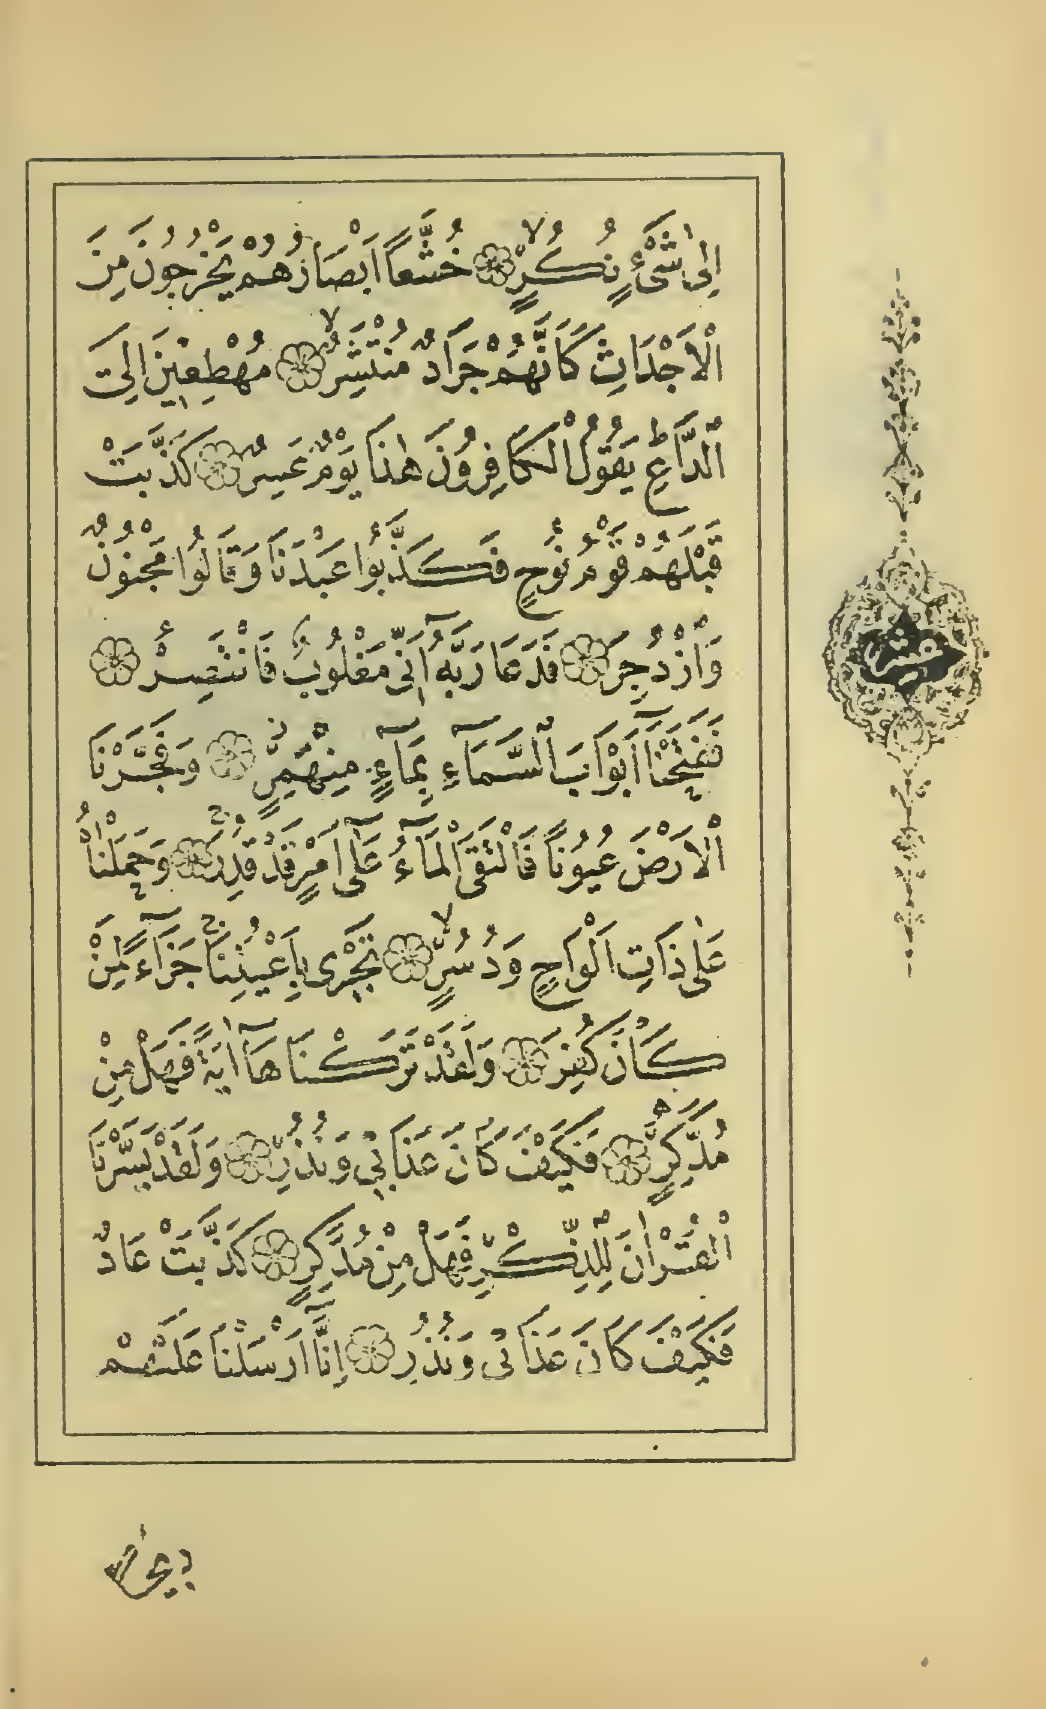 اِلٰى شَىْءٍ نُكُرٍۙ خُشَّعاً اَبْصَارُهُمْ يَخْرُجُونَ مِنَ
الْاَجْدَاثِ كَاَنَّهُمْ جَرَادٌ مُنْتَشِرٌۙ مُهْطِعِينَ اِلَى
الدَّاعِۜ يَقُولُ الْكَافِرُونَ هٰذَا يَوْمٌ عَسِرٌ كَذَّبَتْ
قَبْلَهُمْ قَوْمُ نُوحٍ فَكَذَّبُوا عَبْدَنَا وَقَالُوا مَجْنُونٌ
وَازْدُجِرَ فَدَعَا رَبَّهُٓ اَنِّى مَغْلُوبٌ فَانْتَصِرْ
فَفَتَحْنَٓا اَبْوَابَ السَّمَٓاءِ بِمَٓاءٍ مُنْهَمِرٍ وَفَجَّرْنَا
الْاَرْضَ عُيُوناً فَالْتَقَى الْمَٓاءُ عَلٰٓى اَمْرٍ قَدْ قُدِرَۚ وَحَمَلْنَاهُ
عَلٰى ذَاتِ اَلْوَاحٍ وَدُسُرٍۙ تَجْرِى بِاَعْيُنِنَاۚ جَزَٓاءً لِمَنْ
كَانَ كُفِرَ وَلَقَدْ تَرَكْنَاهَٓا اٰيَةً فَهَلْ مِنْ
مُدَّكِرٍ فَكَيْفَ كَانَ عَذَابِى وَنُذُرِ وَلَقَدْ يَسَّرْنَا
الْقُرْاٰنَ لِلذِّكْرِ فَهَلْ مِنْ مُدَّكِرٍ كَذَّبَتْ عَادٌ
فَكَيْفَ كَانَ عَذَابِى وَنُذُرِ اِنَّٓا اَرْسَلْنَا عَلَيْهِمْ